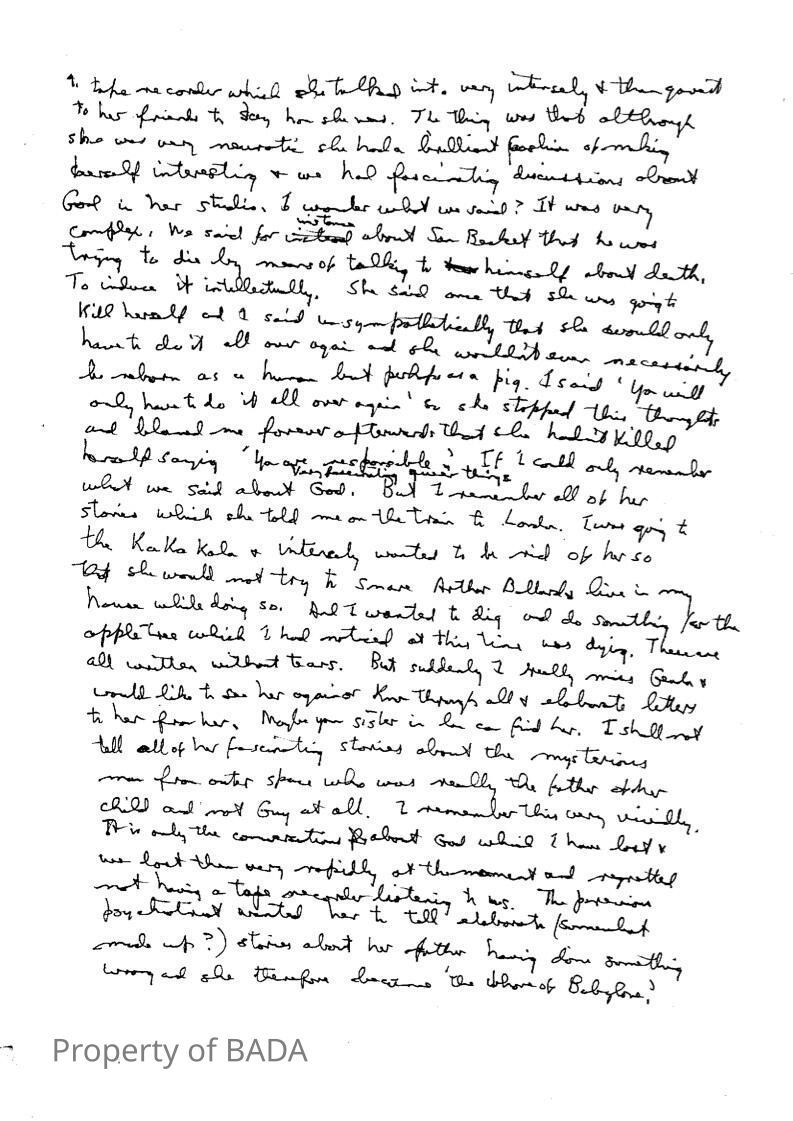 a tape recorder which she talked into very intensely & then gave it
to her friends to say how she was. The thing was that although
she was very neurotic she had a brilliant fashion of making
herself interesting & we had fascinating discussions about
God in her studio. I wonder what we said? It was very
complex. We said for instance about Sam Becket that he was
trying to die by means of talking to himself about death.
To induce it intellectually. She said once that she was going to
kill herself and I said unsympathetically that she would only
have to do it all over again and she wouldn't even necessarily
be reborn as a human but perhaps as a pig. I said 'You will
only have to do it all over again' so she stopped this thought
and blamed me forever afterwards that she hadn't killed
herself saying 'You are responsible'. If I could only remember
very fascinating queer things
what we said about God. But I remember all of her
stories which she told me on the train to London. I was going to
the KaKa Kala & intensely wanted to be rid of her so
that she would not try to snare Arthur Ballard & live in my
house while doing so. And I wanted to dig and do something for the
apple tree which I had noticed at this time was dying. These are
all written without tears. But suddenly I really miss &
would like to see her again or know through all & elaborate letters
to her from her. Maybe your sister in law can find her. I shall not
tell all of her fascinating stories about the mysterious
man from outer space who was really the father of her
child and not Guy at all. I remember this very vividly.
It is only the conversations about God which I have lost &
we lost them very rapidly at the moment and regretted
not having a tape recorder listening to us. The previous
psychiatrist wanted her to tell elaborate (somewhat
made up?) stories about her father having done something
wrong and she therefore became 'the Whore of Babylon'.
Property of BADA